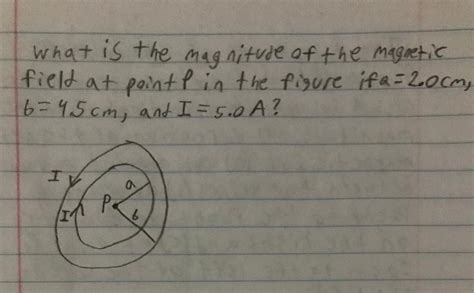 what is the magnitude of the magnetic
field at point P in the figure if a=2.0cm,
b=4.5cm, and I=5.0A?
I
a
I
P
b